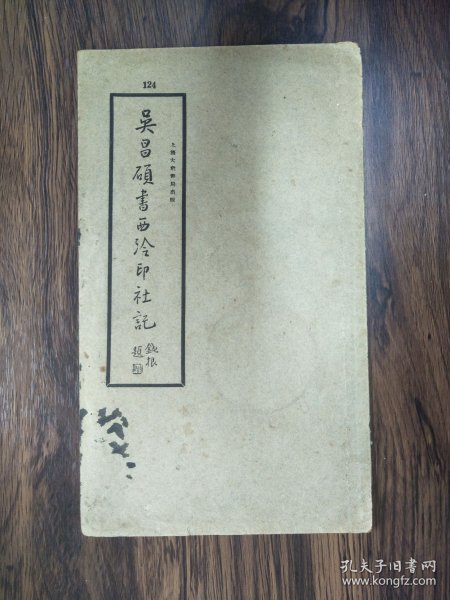 124
上海大眾書局出版
吳昌碩書西泠印社記
鐵根
題
孔夫子旧书网
www.kongfz.com